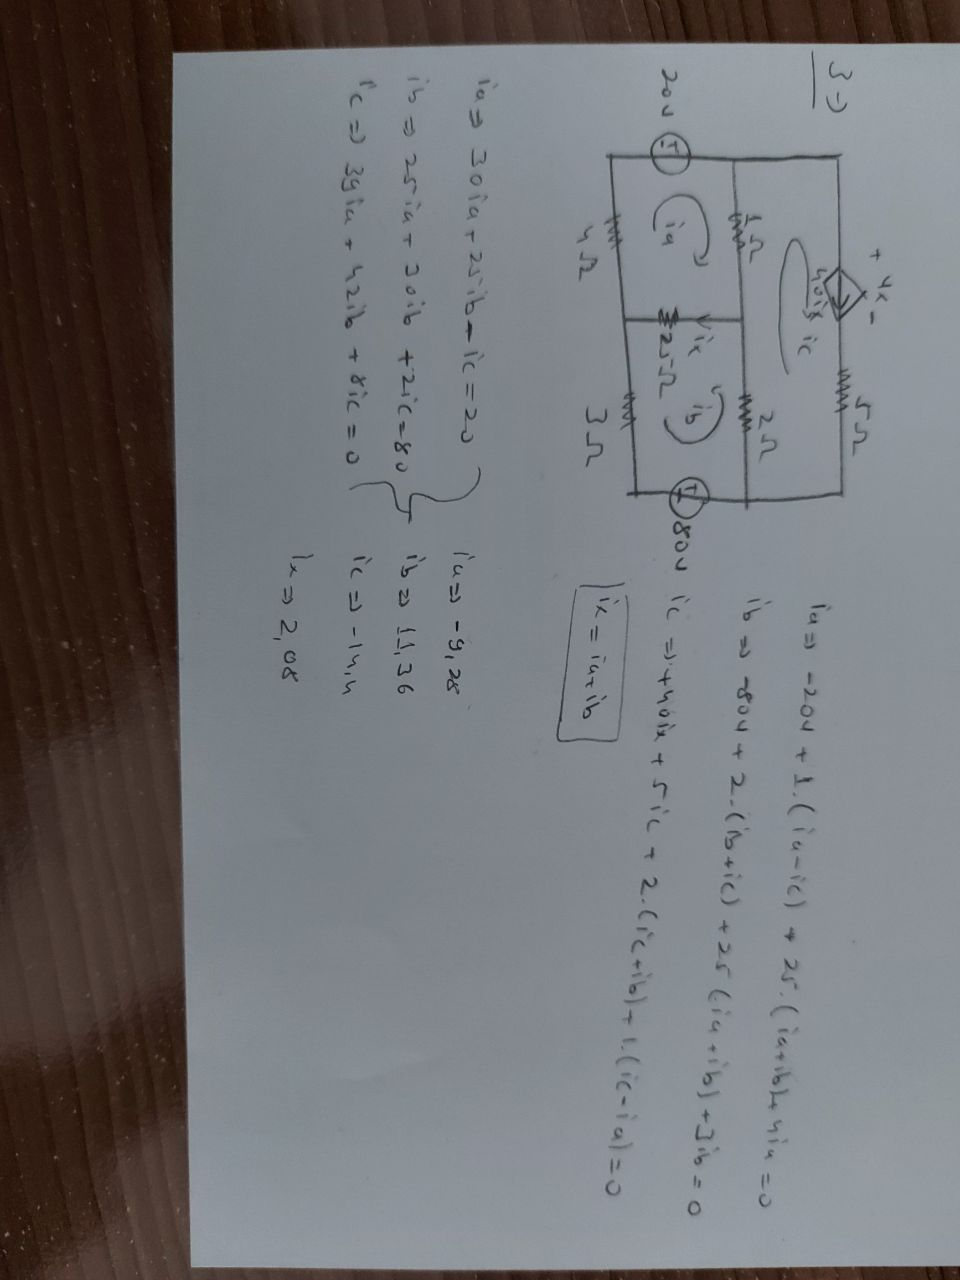 3-)
+ Vx -
40ix
5Ω
ic
1Ω
2Ω
20V
+ -
ia
ix
25Ω
ib
+ -
80V
4Ω
3Ω
ia => -20V + 1.(ia-ic) + 25.(ia+ib)+4ia = 0
ib => -80V + 2.(ib+ic) + 25(ia+ib)+3ib = 0
ic => +40ix + 5ic + 2.(ic+ib)+1.(ic-ia)=0
ix = ia+ib
ia => 30ia + 25ib - ic = 20
ib => 25ia + 30ib + 2ic = 80
ic => 39ia + 42ib + 8ic = 0
ia => -9,28
ib => 11,36
ic => -14,4
ix => 2,08